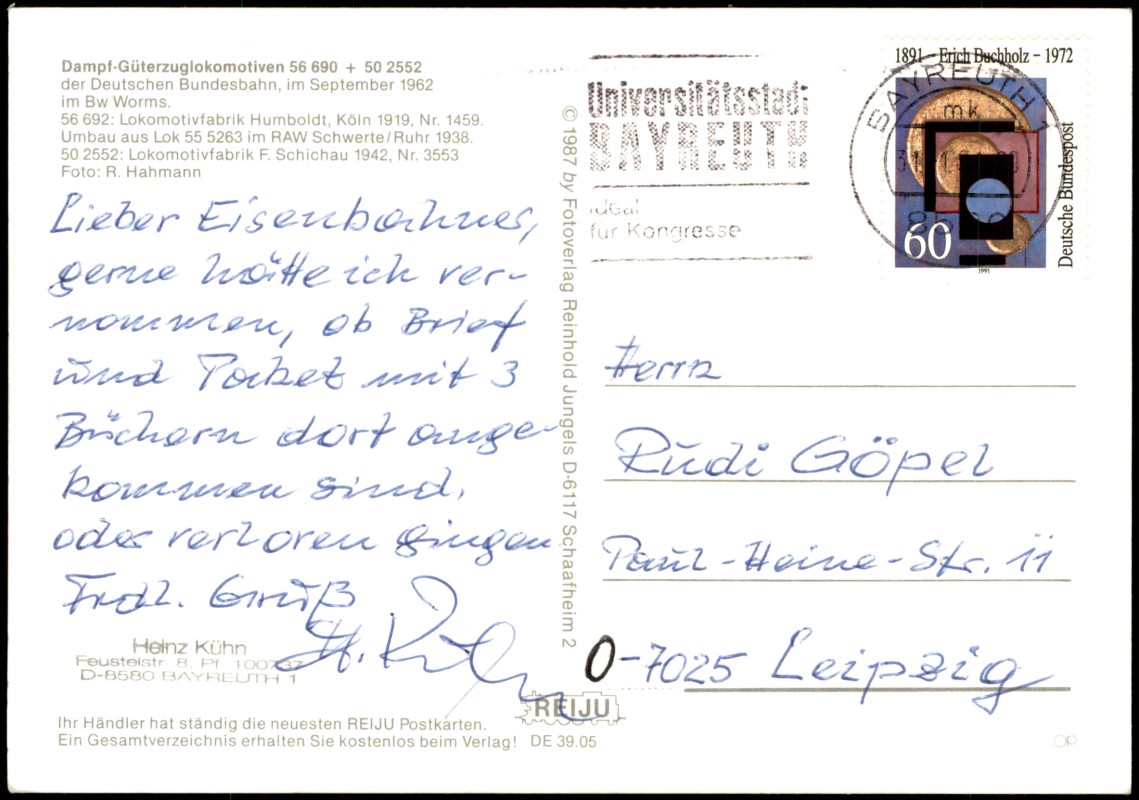 Dampf-Güterzuglokomotiven 56 690 + 50 2552
der Deutschen Bundesbahn, im September 1962
im Bw Worms.
56 692: Lokomotivfabrik Humboldt, Köln 1919, Nr. 1459.
Umbau aus Lok 55 5263 im RAW Schwerte/Ruhr 1938.
50 2552: Lokomotivfabrik F. Schichau 1942, Nr. 3553
Foto: R. Hahmann
Lieber Eisenbahner,
gerne hätte ich ver-
nommen, ob Brief
und Paket mit 3
Büchern dort ange-
kommen sind,
oder verloren gingen
Frdl. Gruß
H. Kühn
Heinz Kühn
Feustelstr. 8, Pf. 100737
D-8580 BAYREUTH 1
Ihr Händler hat ständig die neuesten REIJU Postkarten.
Ein Gesamtverzeichnis erhalten Sie kostenlos beim Verlag! DE 39.05
© 1987 by Fotoverlag Reinhold Jungels D-6117 Schaafheim 2
REIJU
Universitätsstadt
BAYREUTH
ideal
für Kongresse
BAYREUTH 1
mk
1891 – Erich Buchholz – 1972
Deutsche Bundespost
60
1991
Herrn
Rudi Göpel
Paul-Heine-Str. 11
O-7025 Leipzig
OP